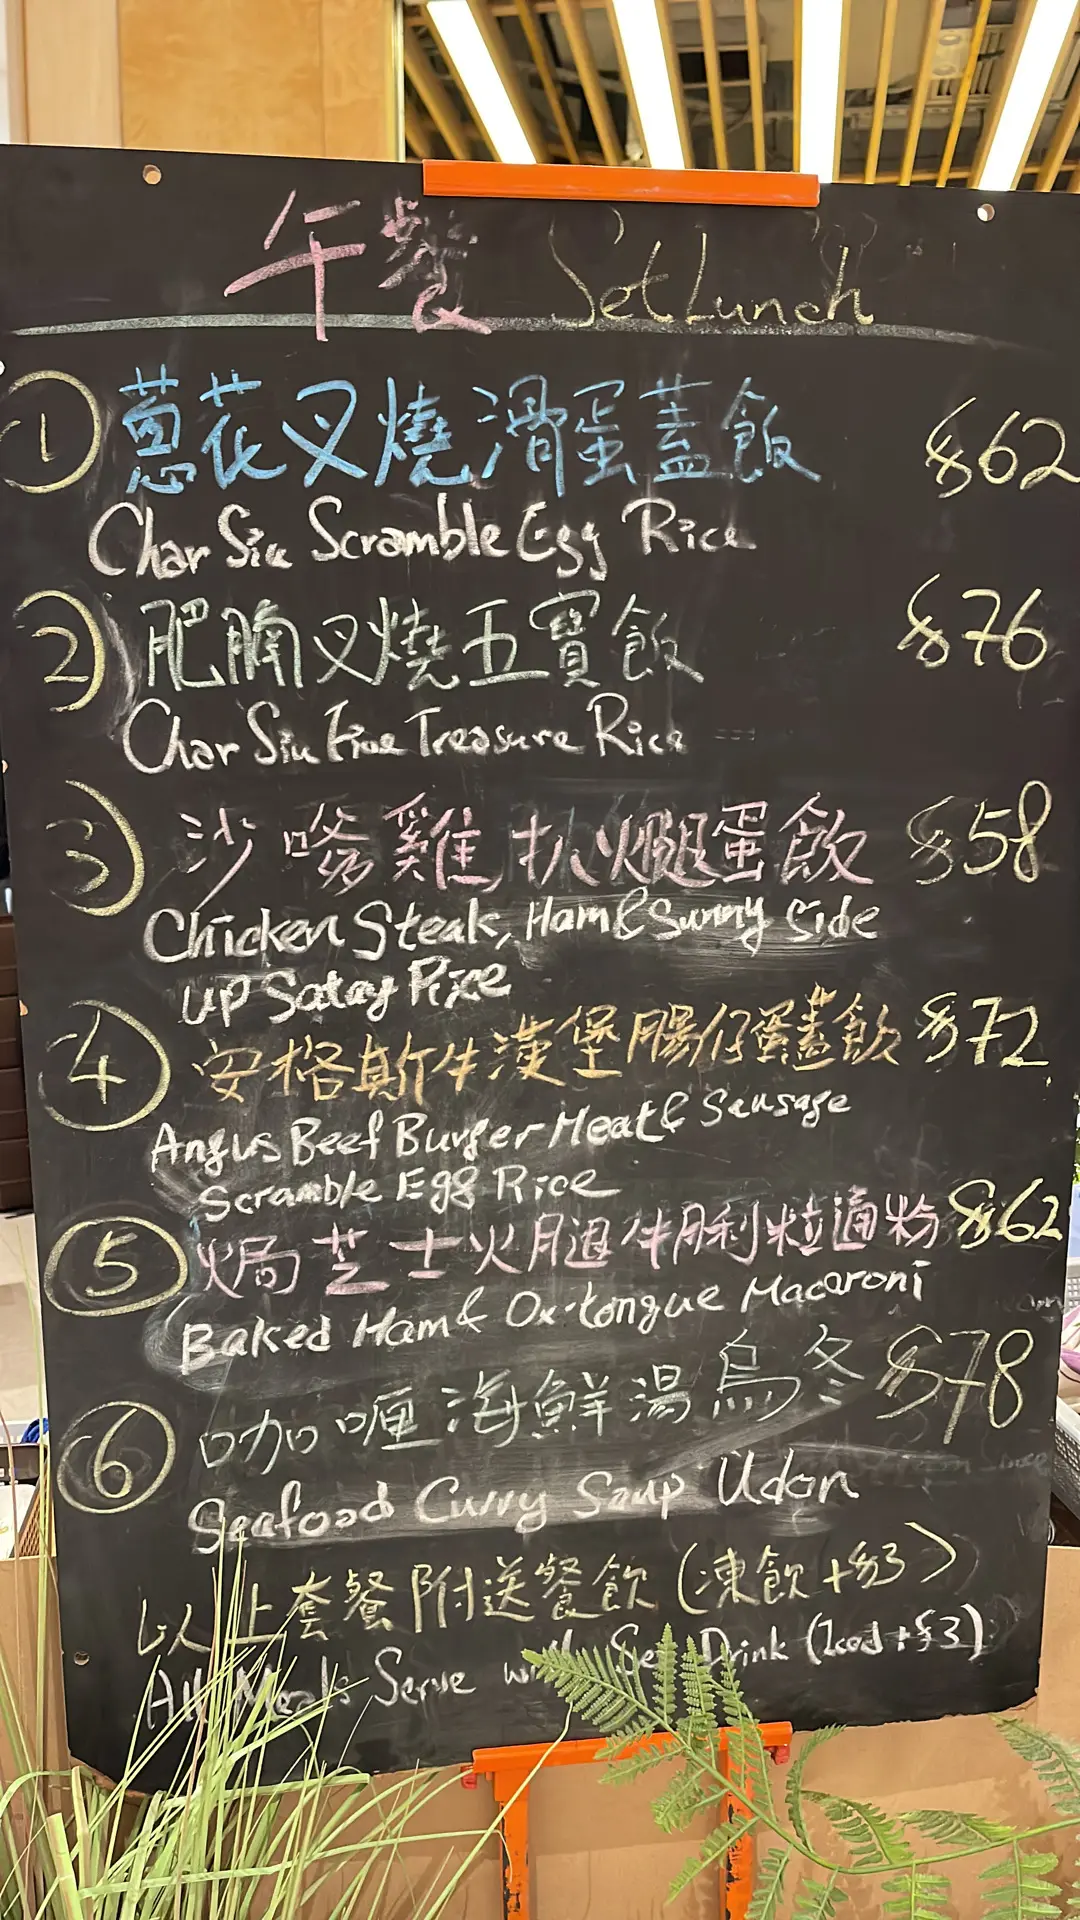 午餐 Set Lunch
① 蔥花叉燒滑蛋蓋飯 $62
Char Siu Scramble Egg Rice
② 肥腩叉燒五寶飯 $76
Char Siu Five Treasure Rice
③ 沙嗲雞扒火腿蛋飯 $58
Chicken Steak, Ham & Sunny Side
up Satay Rice
④ 安格斯牛漢堡腸仔蛋蓋飯 $72
Angus Beef Burger Meat & Sausage
Scramble Egg Rice
⑤ 焗芝士火腿牛脷粒通粉 $62
Baked Ham & Ox-tongue Macaroni
⑥ 咖喱海鮮湯烏冬 $78
Seafood Curry Soup Udon
以上套餐附送餐飲 (凍飲+$3)
All Meals Serve with Set Drink (Iced +$3)